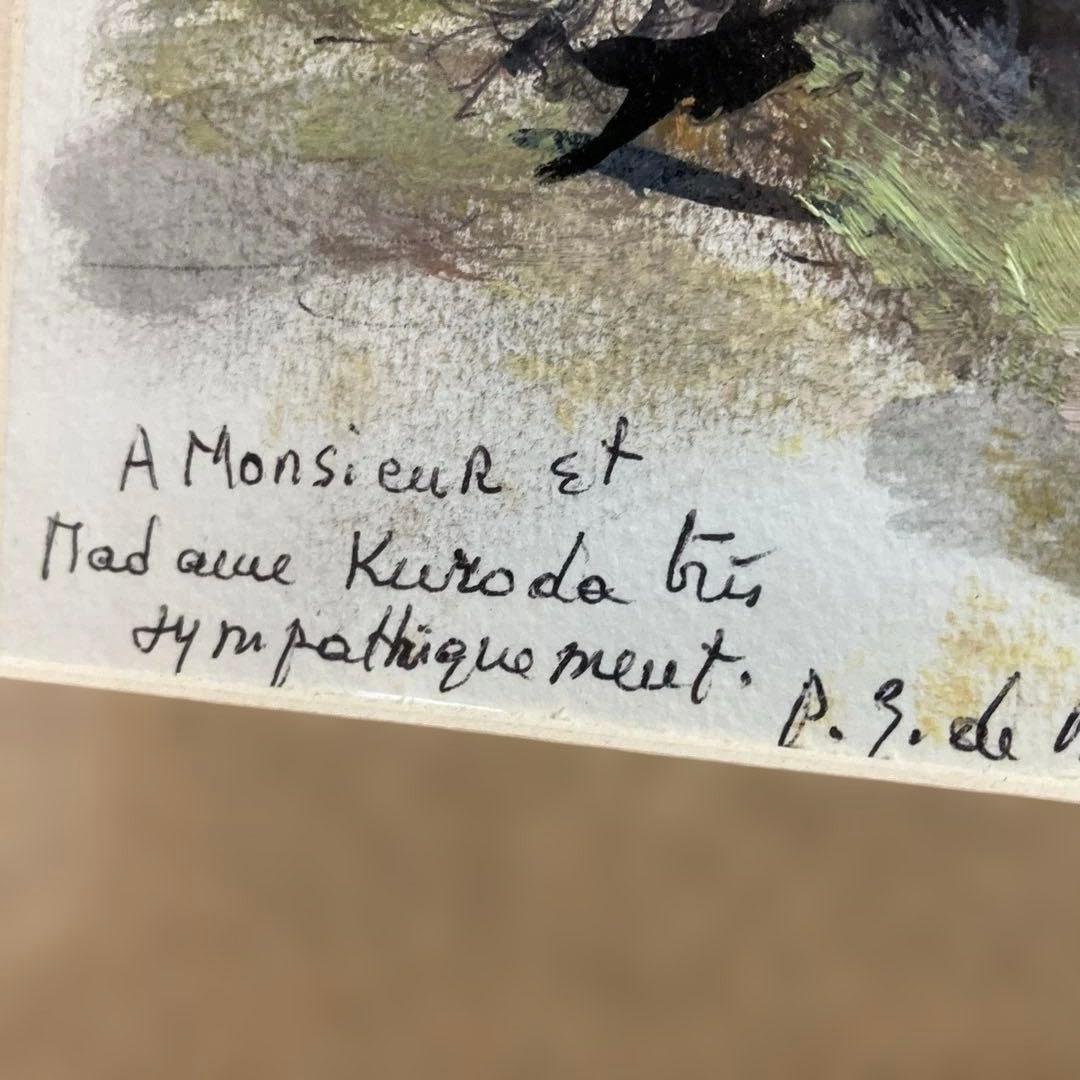 A Monsieur et
Madame Kuroda très
sympathiquement.
P. G. de